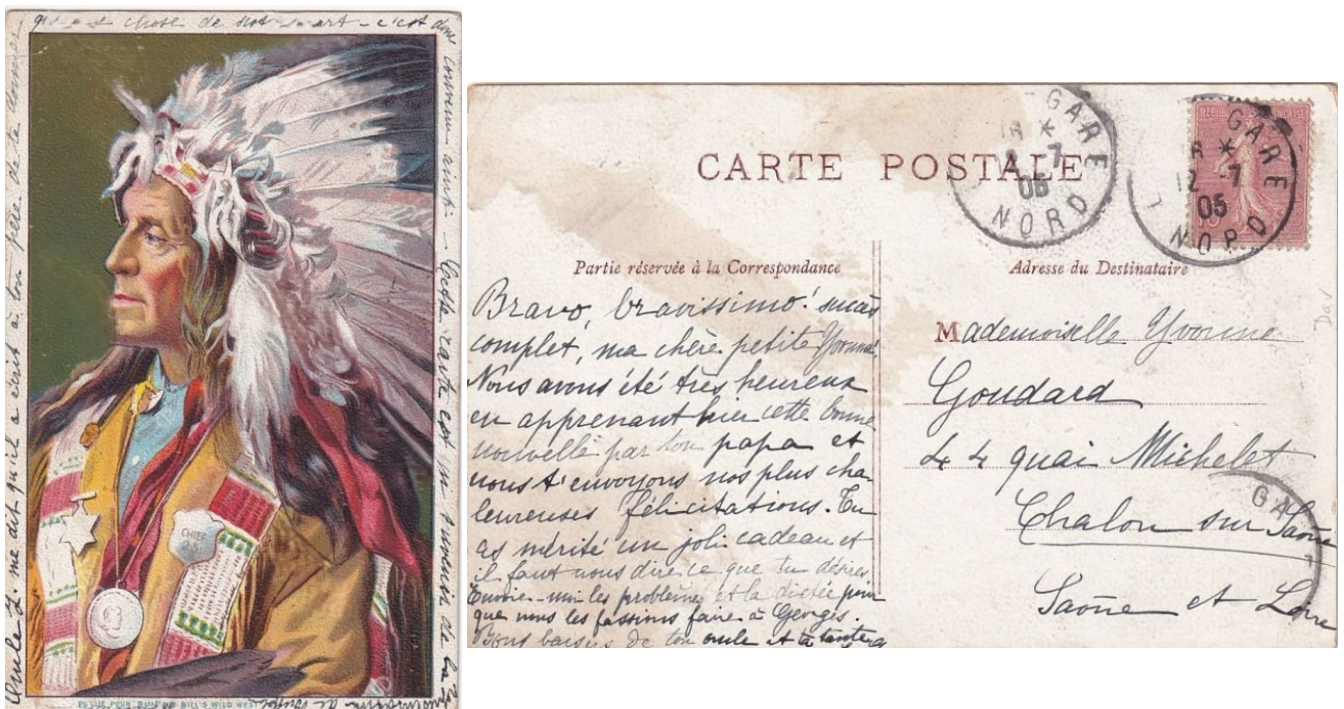 Oncle L. me dit qu'il a écrit à ton père de te donner
chose de notre part - c'est donc
convenu ainsi - Cette carte est un souvenir de la
CHIEF
BUFFALO BILL'S WILD WEST
CARTE POSTALE
GARE
7
05
NORD
RÉPUBLIQUE FRANÇAISE
GARE
12 - 7
05
NORD
Partie réservée à la Correspondance
Bravo, bravissimo! succès
complet, ma chère petite Yvonne
Nous avons été très heureux
en apprenant hier cette bonne
nouvelle par ton papa et
nous t'envoyons nos plus cha
leureuses félicitations. Tu
as mérité un joli cadeau et
il faut nous dire ce que tu désires
Envoie-nous les problèmes et la dictée pour
que nous les fassions faire à Georges.
Bons baisers de ton oncle et ta tante
Adresse du Destinataire
Mademoiselle Yvonne
Goudard
44 quai Michelet
Chalon sur Saône
Saône et Loire
GA
Dav